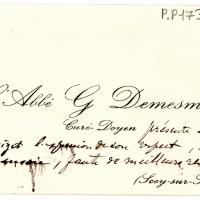 P.P173
L'Abbé G Demesm
Curé-Doyen présente
l'expression de son respect,
, faute de meilleure
(Scey-sur-S